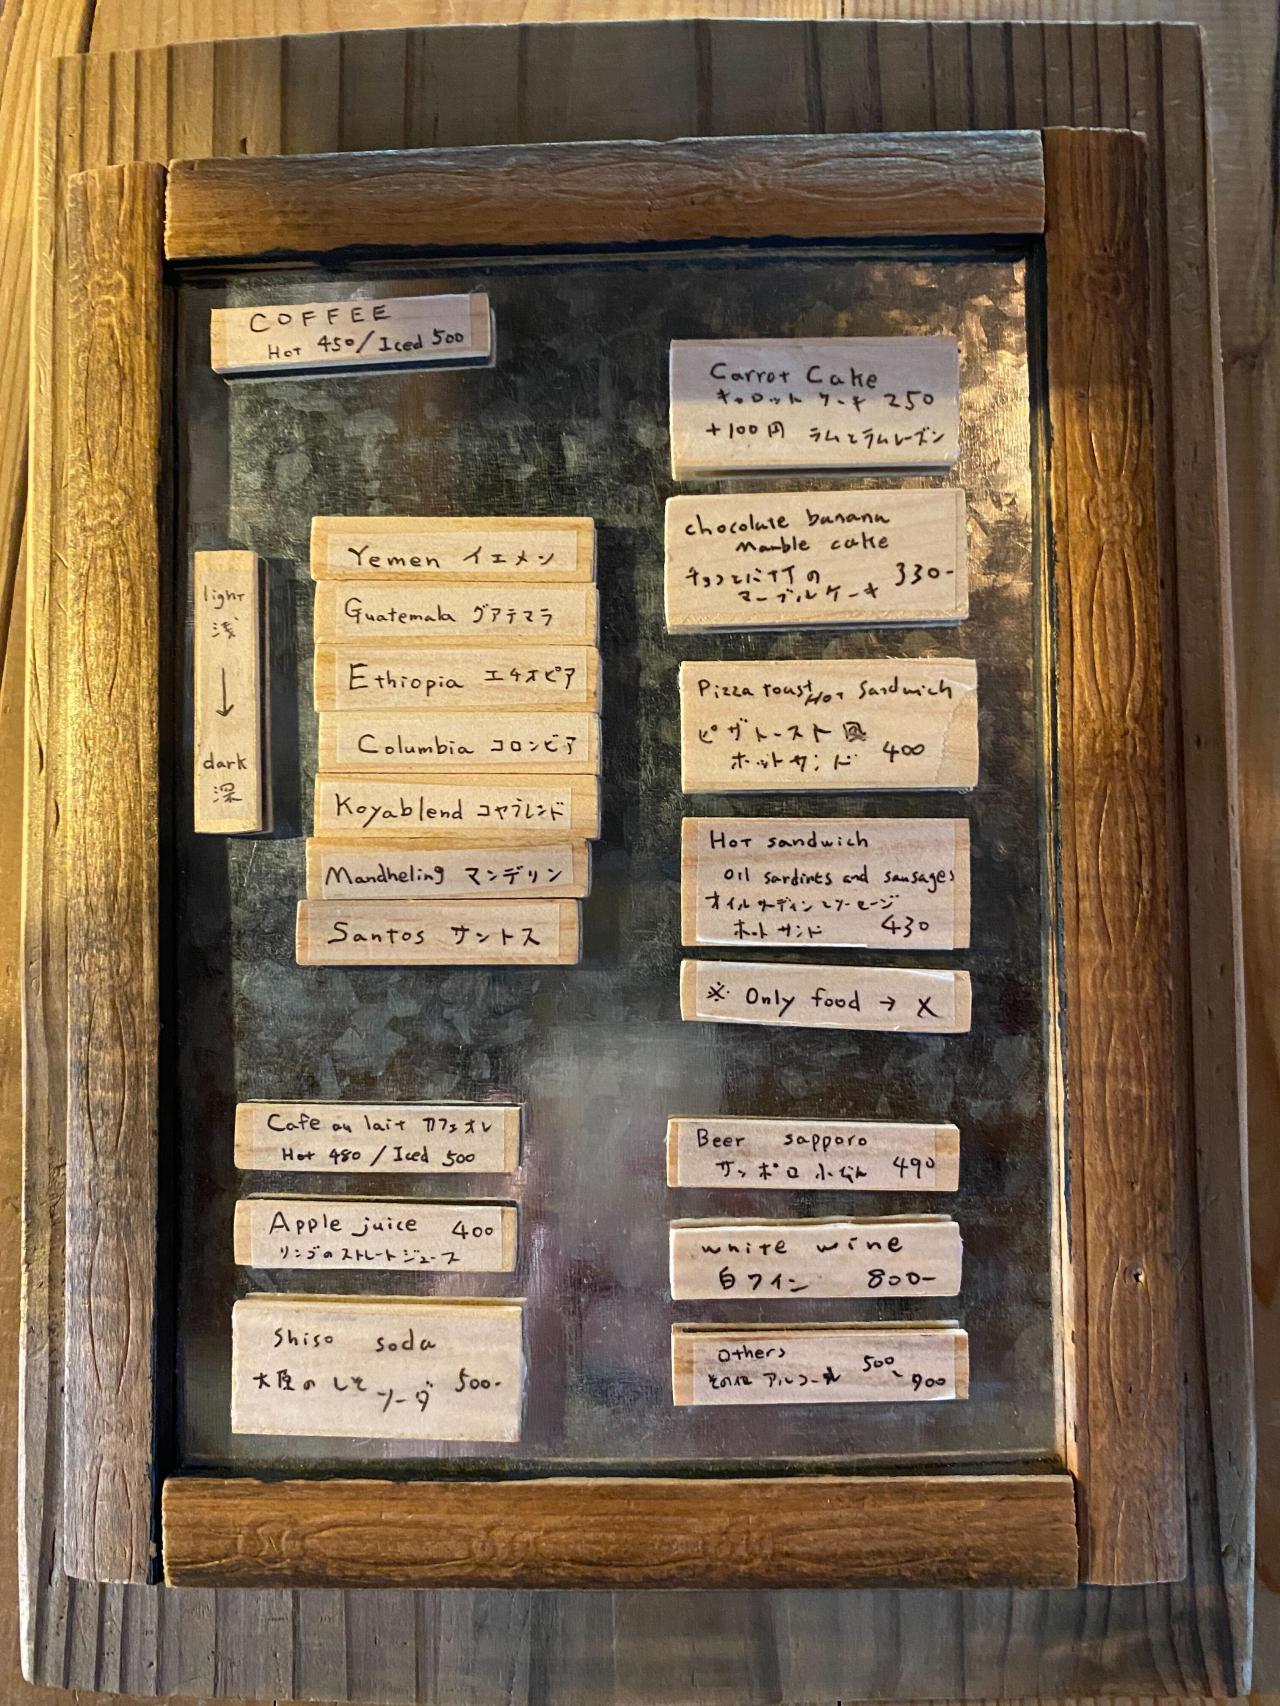 COFFEE
Hot 450/Iced 500
light
浅
↓
dark
深
Yemen イエメン
Guatemala グアテマラ
Ethiopia エチオピア
Columbia コロンビア
Koyablend コヤブレンド
Mandheling マンデリン
Santos サントス
Cafe au lait カフェオレ
Hot 480 / Iced 500
Apple juice 400
リンゴのストレートジュース
Shiso soda
大原のしそ 500-
ソーダ
Carrot Cake
キャロットケーキ 250
+100円 ラムとラムレーズン
chocolate banana
marble cake
チョコとバナナの 330-
マーブルケーキ
Pizza toast Hot Sandwich
ピザトースト風
ホットサンド 400
Hot sandwich
Oil sardines and sausages
オイルサーディンとソーセージ
ホットサンド 430
※ Only food → X
Beer sapporo
サッポロ 小びん 490
white wine
白ワイン 800-
others
その他 アルコール 500~900